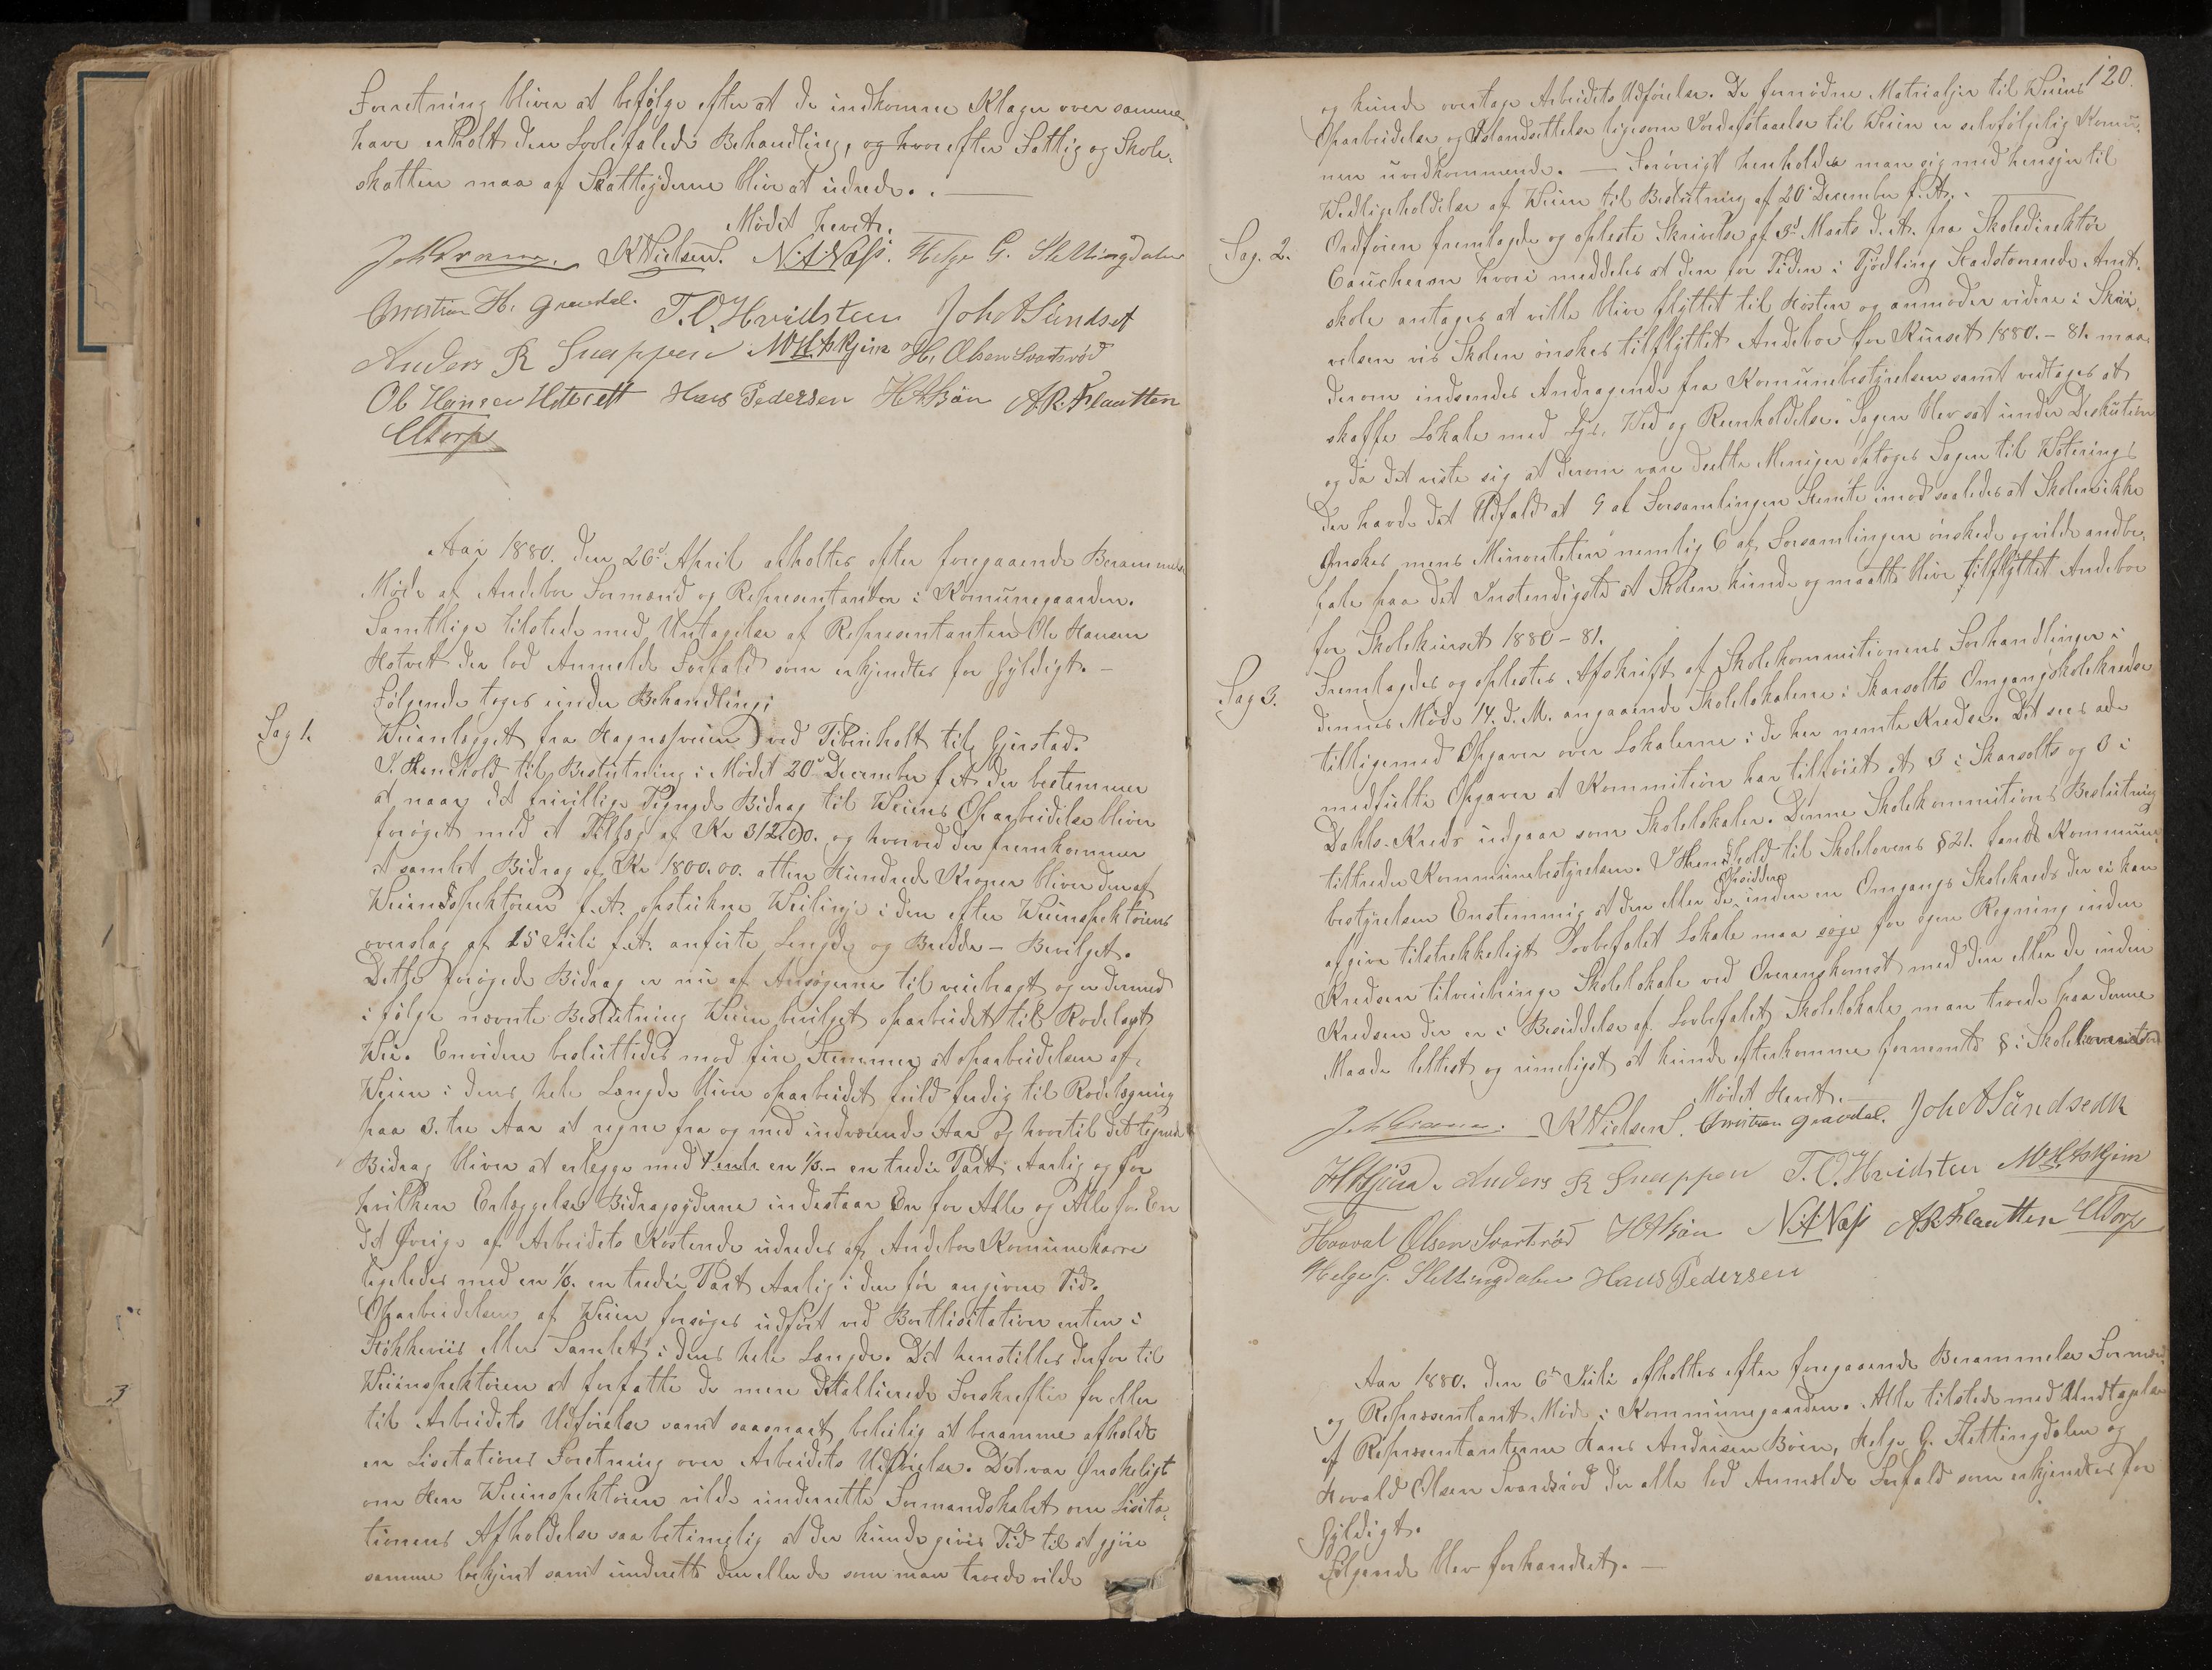 Forretning bliver at befølge efter at de indkomne Klager over samme
have erholdt den Lovbefalede Behandling, og hvorefter Fattig og Skole-
skatten maa af Skatteyderne blive at udrede. —
Mødet hevet.
K Nielsen. N. A Næss. Helge G. Slettingdalen
Christian H. Gravdal. T. O. Hvidsten Joh A Sundset
Anders R Gneppen M H Askjem H. Olsen Svartsrød
Ole Hansen Hotvett Hans Pedersen H A Bøen A. R. Flaatten
C Torp
Aar 1880 den 26d April afholtes efter foregaaende Berammelse
Møde af Andebø Formænd og Representanter i Komunegaarden.
Samtlige tilstede med Untagelse af Representanten Ole Hansen
Hotvet der lod Anmelde Forfald som erkjendtes for Gyldigt. —
Følgende toges under Behandling:
Sag 1. Veianlægget fra Hagnesveien ved Tibeinholt til Gjerstad.
I Hendhold til Beslutning i Mødet 20de December f. A. der bestemmer
at naar det frivillige Tegnede Bidrag til Veiens Oparbeidelse bliver
forøget med et Tillæg af Kr 312,00. og hvorved der fremkommer
et samlet Bidrag af Kr 1800.00. atten Hundrede Kroner bliver den af
Veiinspektøren f. A. opstukne Veilinje i den efter Veiinspektørens
overslag af 15 Juli f. A. anførte Lengde og Bredde – Bevilget.
Dette forøgede Bidrag er nu af Ansøgerne tilveiebragt og er dermed
i følge nævnte Beslutning Veien bevilget oparbeidet til Rodelagt
Vei. Envidere besluttedes mod fire Stemmer at oparbeidelsen af
Veien i dens hele Længde bliver oparbeidet fuld ferdig til Rodelægning
paa 3. tre Aar at regne fra og med indværende Aar og hvortil det tegnede
Bidrag bliver at erlegge med en 1/3 – en tredie Part Aarlig og for
hvilken Erlæggelse Bidragsyderne indestaar En for Alle og Alle for En
Det Øvrige af Arbeidets Kostende udredes af Andebø Komunekasse
ligeledes med en 1/3. en tredie Part Aarlig i den før angivne Tid.
Oparbeidelsen af Veien forsøges udført ved Bortlisitation enten i
Støkkeviis eller Samlet i dens hele Længde. Det henstilles derfor til
Veiinspektøren at forfatte de mere Detallierede Forskrefter for eller
til Arbeidets Udførelse samt saasnart beleilig at beramme afholdt
en Lisitations Foretning over Arbeidets Udførelse. Det var Ønskeligt
om Herr Veiinspektøren vilde underrette Formandskabet om Lisita-
tionens Afholdelse saa betimelig at der kunde gives Tid til at gjøre
samme bekjent samt underette den eller de som man troede vilde
120.
og kunde overtage Arbeidets Udførelse. De fornødne Matrialjer til Veiens
Oparbeidelse og Istandsettelse ligesom Jordafstaaelse til Veien er selvfølgelig Komu-
nen uvedkommende. — Forøvrigt henholder man sig med hensyn til
Vedligeholdelse af Veien til Beslutning af 20de December f. A. —
Sag. 2. Ordføren fremlagde og opleste Skrivelse af 5d Marts d. A. fra Skoledirektør
Caucheron hvori meddeles at den for Tiden i Tjødling Stadtionerede Amt-
skole antages at ville blive flyttet til Høsten og anmoder videre i Skri-
velsen vis Skolen ønskes tilflyttet Andebø for Kurset 1880. – 81. maa
derom indsendes Andragende fra Komunebestyrelsen samt vedtages at
skaffe Lokale med Lys, Ved og Reenholdelse. Sagen blev sat under Deskution
og da det viste sig at derom vare deelte Meninger optoges Sagen til Votering
der havde det Udfald at 9 af Forsamlingen Stemte imod saaledes at Skolen ikke
Ønskes, mens Minoriteten nemlig 6 af Forsamlingen ønskede og vilde andbe-
fale paa det Instendigste at Skolen kunde og maatte blive tilflyttet Andebø
for Skolekurset 1880 – 81.
Sag 3. Fremlagdes og oplestes Afskrift af Skolekommitionens Forhandlinger i
dennes Møde 14. d. M. angaaende Skolelokalerne i Skarsolts Omgangskolekreds
tilligemed Opgaver over Lokalerne i de her nemte Kredse. Det sees af de
medfulte Opgaver at Kommition har tilføiet at 3 i Skarsolts og 3 i
Dahls-Kreds udgaar som Skolelokaler. Denne Skolekommitions Beslutning
tiltreder Kommunebestyrelsen. I Henhold til Skolelovens § 21. fandt Kommune-
bestyrelsen Enstemmig at den eller de Opsiddere inden en Omgangs Skolekreds der ei kan
afgive tilstrekkeligt Lovbefalet Lokale maa søge for egen Regning inden
Kredsen tilveiebringe Skolelokale ved Overenskomst med den eller de inden
Kredsen der er i Besiddelse af Lovbefalet Skolelokale man troede paa denne
Maade lettest og rimeligst at kunde efterkomme fornemte § i Skoleloven
Mødet Hevet.
K Nielsen. Christian Gravdal. Joh A Sundsedt
Anders R Gneppen T. O. Hvidsten M H Askjem
Haaval Olsen Svartsrød H A Bøen N. A Næss A R Flaatten C Torp
Helge G. Slettingdalen Hans Pedersen
Aar 1880. den 6te Juli afholtes efter foregaaende Berammelse Formænd
og Representant Møde i Kommunegaarden. Alle tilstede med Undtagelse
af Representanterne Hans Andresen Bøen, Helge G. Slettingdalen og
Hovald Olsen Svardsrød der alle lod Anmelde Forfald som erkjendtes for
Gyldigt.
Følgende blev forhandlet. —